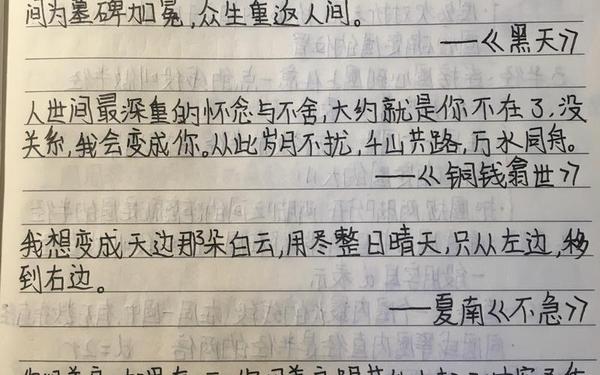 间为墓碑加冕,众生重返人间。
——《黑天》
人世间最深重的怀念与不舍,大约就是你不在了,没
关系,我会变成你。从此岁月不扰,千山共路,万水同舟。
——《铜钱龛世》
我想变成天边那朵白云,用尽整日晴天,只从左边,移
到右边。
——夏南《不急》